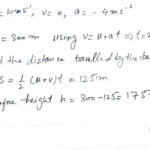 = 10ms⁻¹, v = 0, a = -4ms⁻²
= 300m using v = u + at ⇒ t =
the distance travelled by the
S = ½ (u+v)t = 125m
height h = 300 - 125 = 175